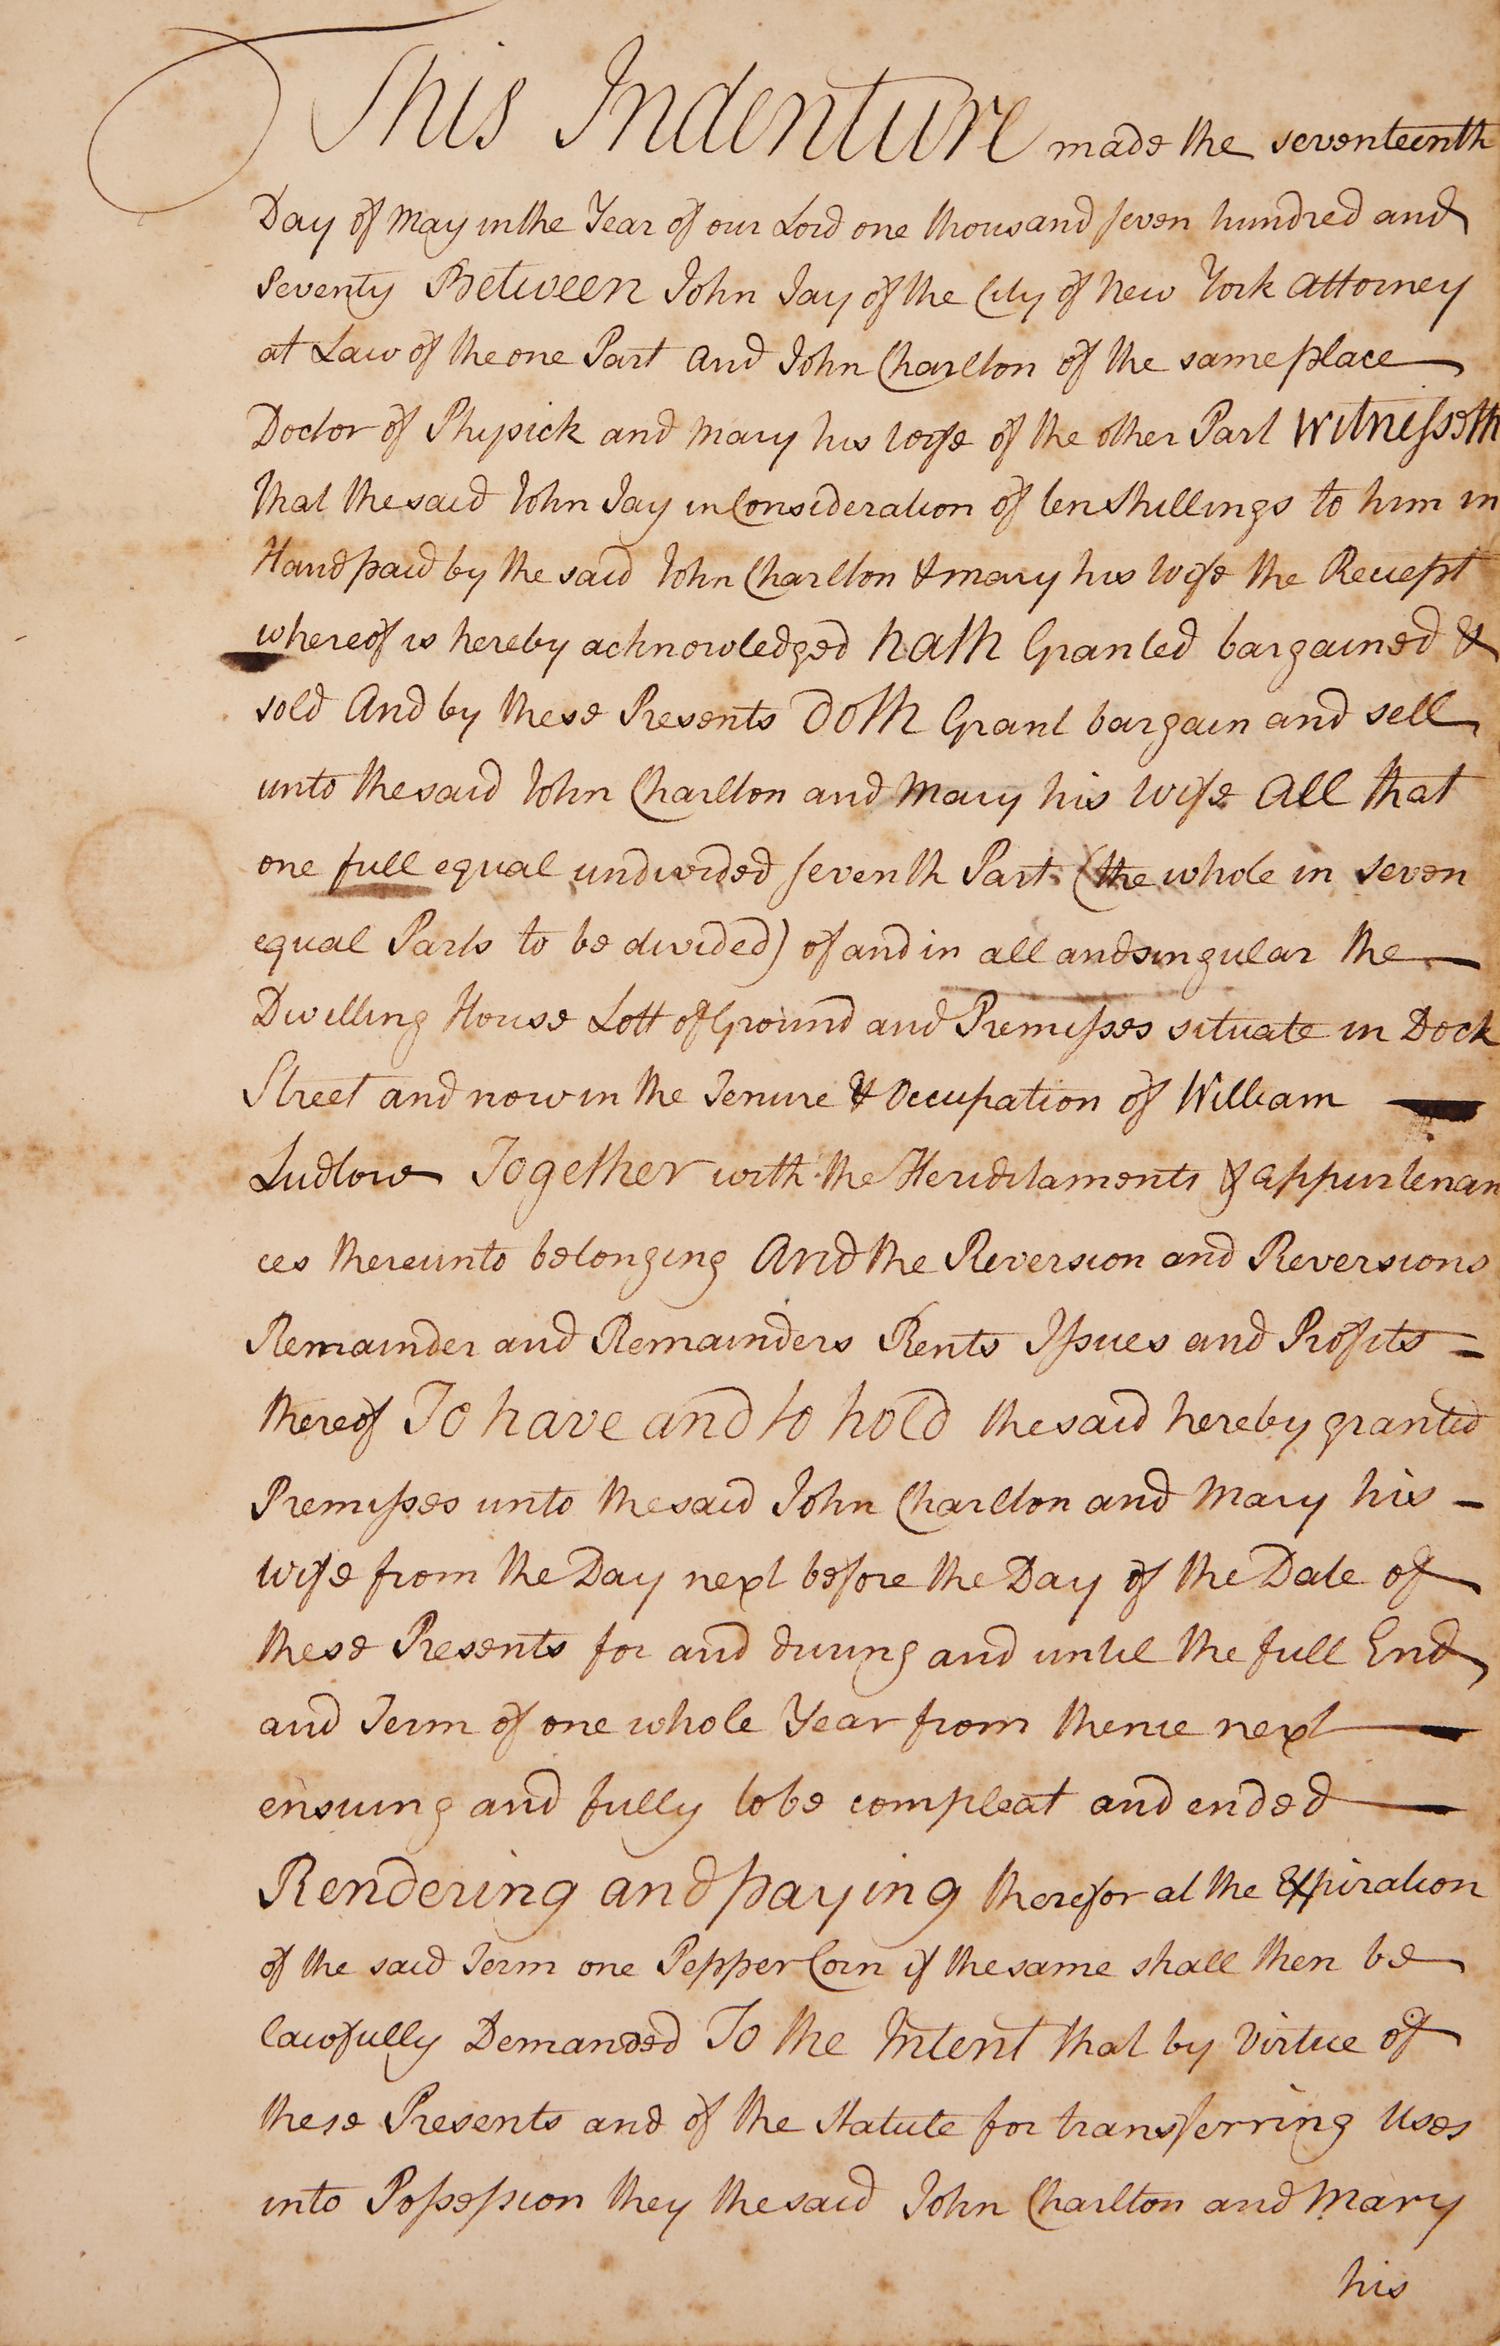 This Indenture made the seventeenth
Day of May in the Year of our Lord one thousand seven hundred and
Seventy Between John Jay of the City of New York Attorney
at Law of the one Part And John Charlton of the same place
Doctor of Physick and Mary his wife of the other Part Witnesseth
that the said John Jay in Consideration of ten Shillings to him in
Hand paid by the said John Charlton & Mary his Wife the Receipt
whereof is hereby acknowledged hath Granted bargained &
sold And by these Presents doth Grant bargain and sell
unto the said John Charlton and Mary his Wife All that
one full equal undivided seventh Part (the whole in seven
equal Parts to be divided) of and in all and singular the
Dwelling House Lott of Ground and Premisses situate in Dock
Street and now in the Tenure & Occupation of William
Ludlow Together with the Heriditaments & appurtenan
ces thereunto belonging And the Reversion and Reversions
Remainder and Remainders Rents Issues and Profits =
thereof To have and to hold the said hereby granted
Premisses unto the said John Charlton and Mary his -
wife from the Day next before the Day of the Date of
these Presents for and during and until the full End
and Term of one whole Year from thence next
ensuing and fully to be compleat and ended
Rendering and paying therefor at the Expiration
of the said Term one Pepper Corn if the same shall then be
lawfully Demanded To the Intent that by Virtue of
these Presents and of the Statute for transferring Uses
into Possession they the said John Charlton and Mary
his